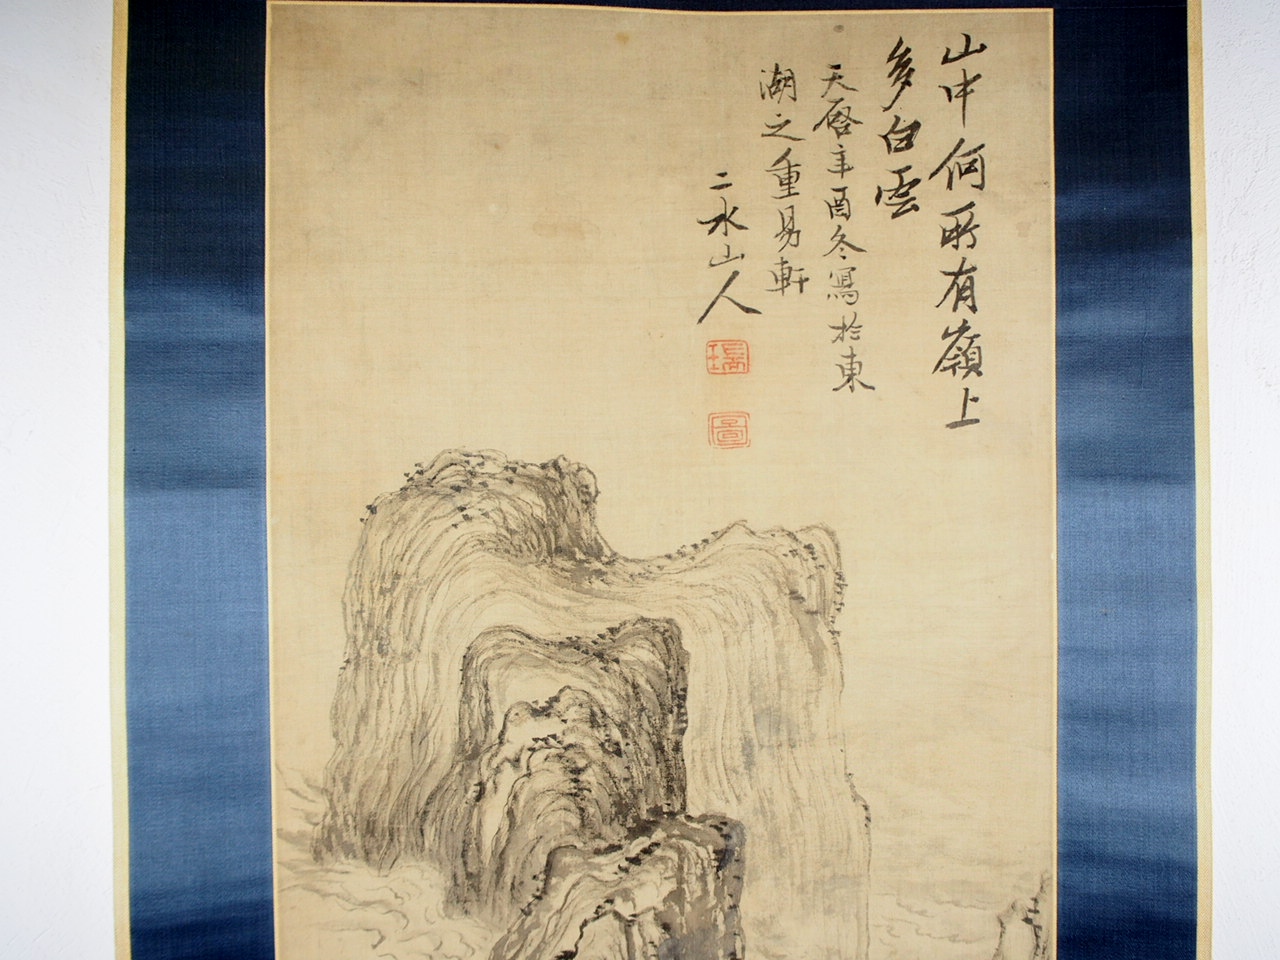 山中何所有嶺上
多白雲
天啓辛酉冬寫於東
湖之重易軒
二水山人
瑞
圖